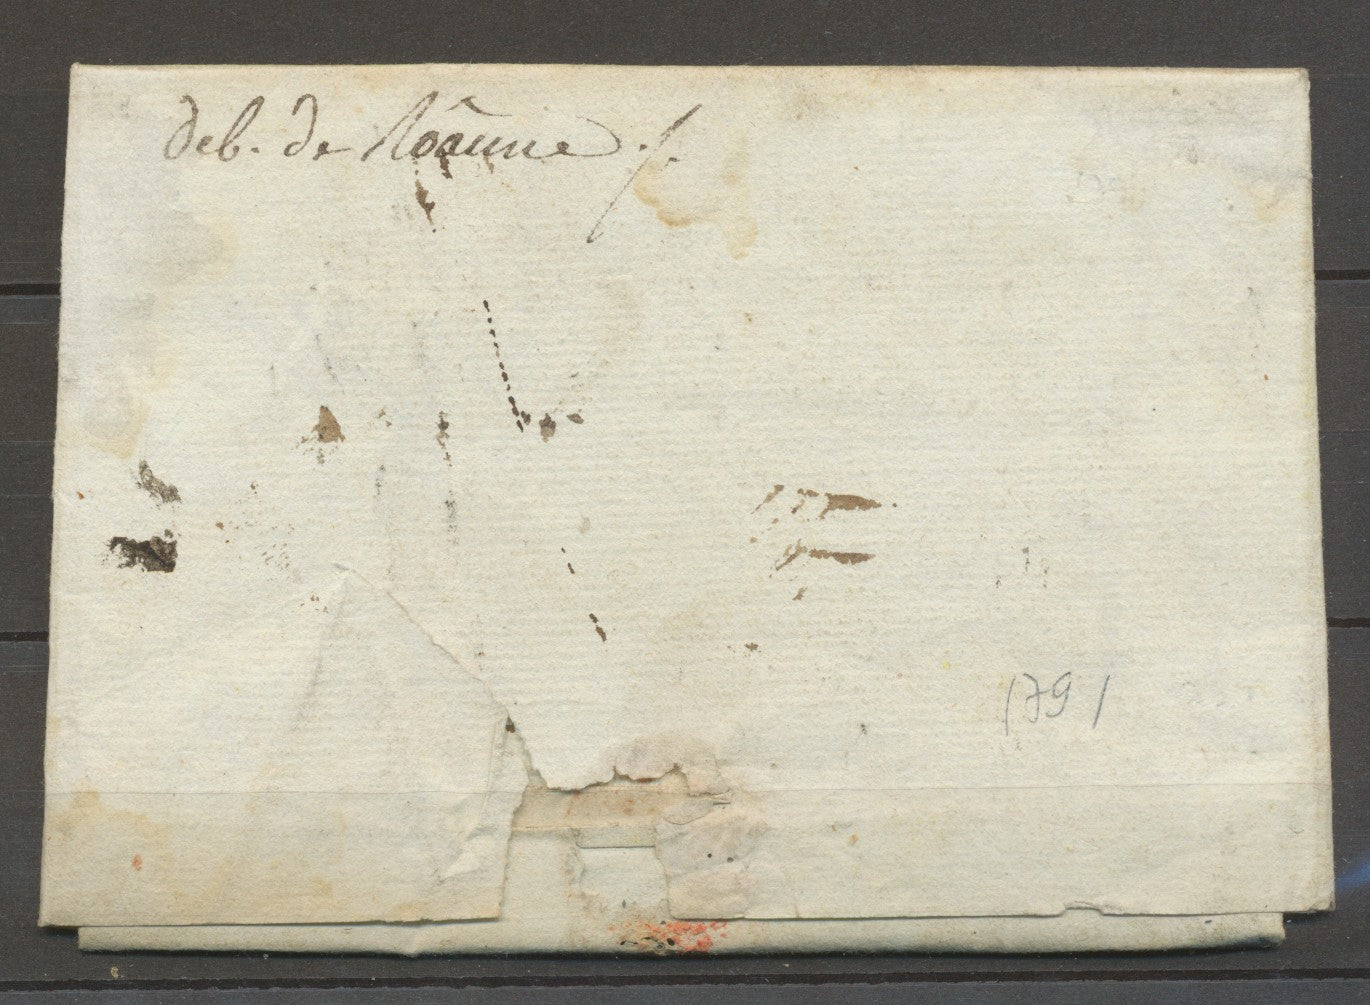 deb. de Roanne ./.
1791